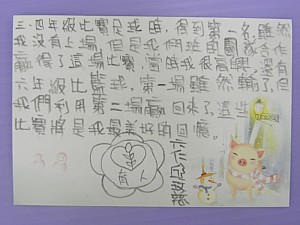 三、四年級比賽足球時,得到第一名,雖然
我沒有上場,但是我們班的團隊合作
贏得了這場比賽,這時我很高興,還有
六年級比籃球,第一場雖然輸了,但
我們利用第二場贏回來了,這些
比賽將是我最美好的回憶。
六